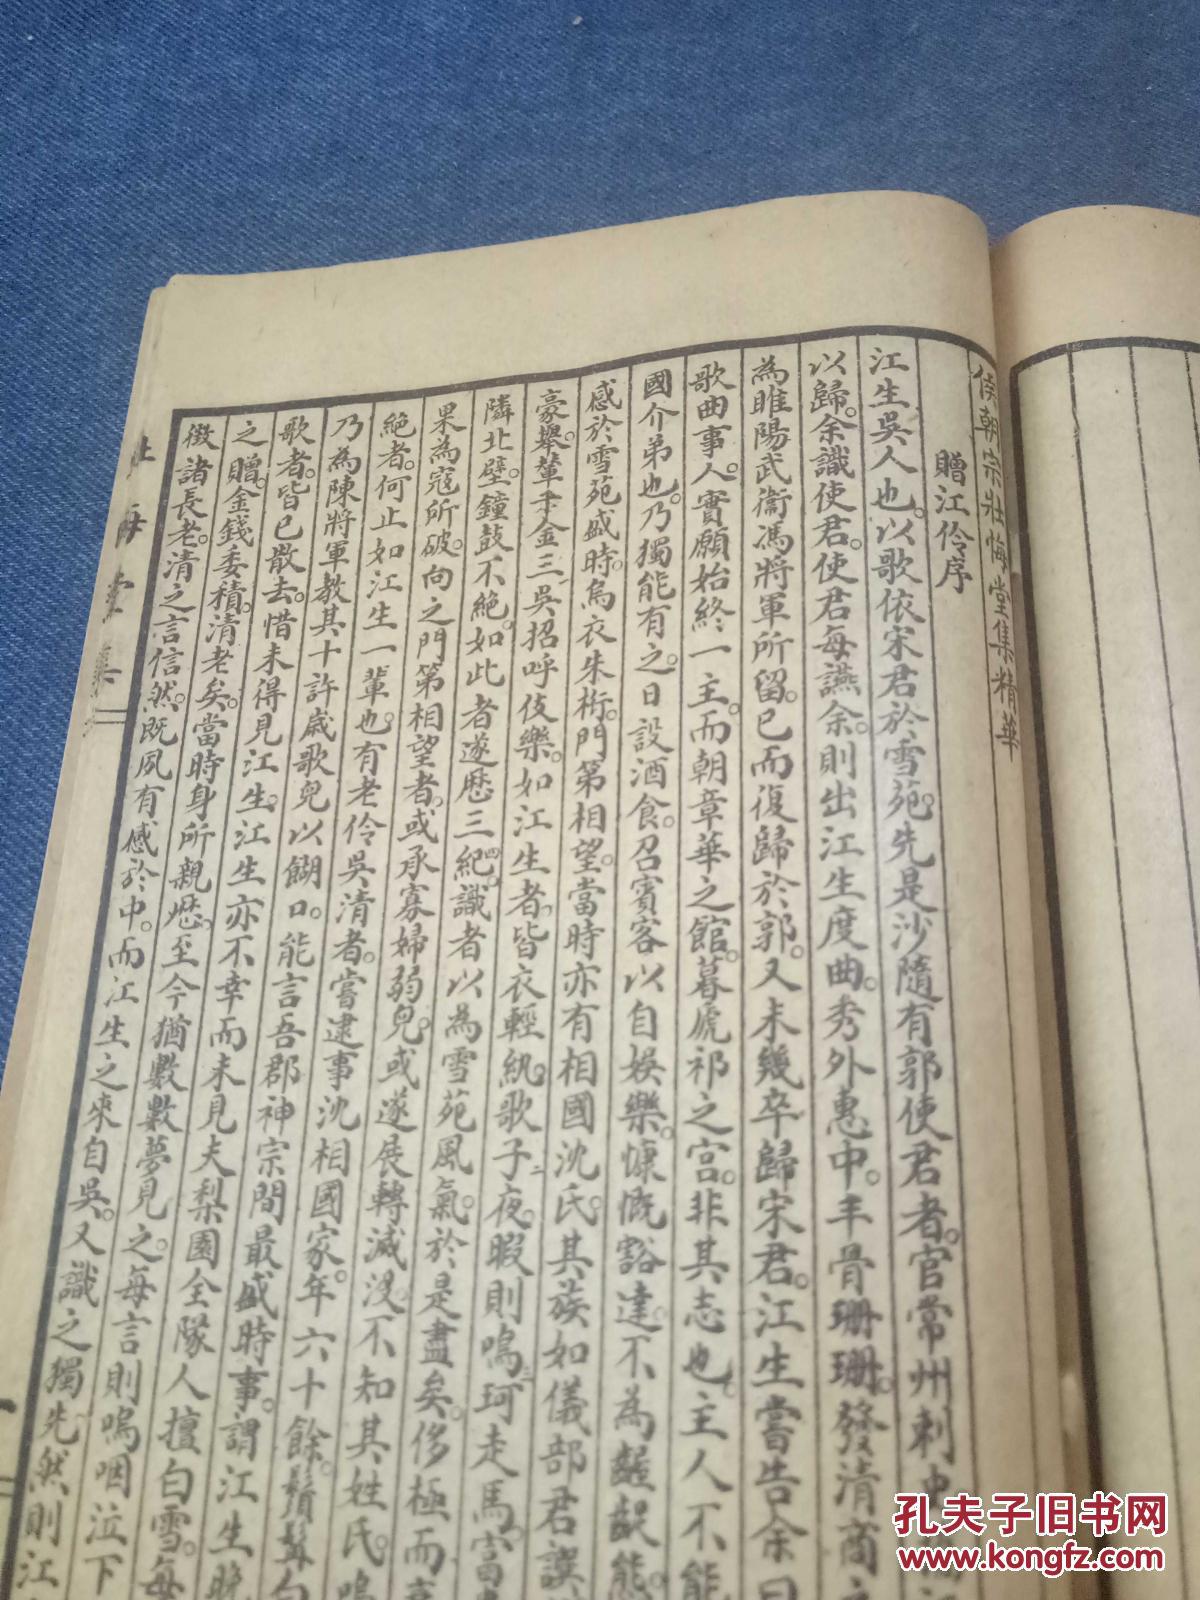 侯朝宗壯悔堂集精華
贈江伶序
江生吳人也。以歌依宋君於雪苑。先是沙隨有郭使君者。官常州刺史
以歸。余識使君。使君每讌余。則出江生度曲。秀外惠中。丰骨珊珊。發清商
為睢陽武衞馮將軍所留。已而復歸於郭。又未幾卒歸宋君。江生嘗告余曰
歌曲事人。實願始終一主。而朝章華之館。暮虒祁之宫。非其志也。主人不能
國介弟也。乃獨能有之。日設酒食。召賓客以自娛樂。慷慨豁達。不為齷齪能
感於雪苑盛時。烏衣朱桁。門第相望。當時亦有相國沈氏。其族如儀部君誤
豪舉。輦千金三吳。招呼伎樂。如江生者。皆衣輕紈。歌子夜。暇則鳴珂走馬。富
隣北壁。鐘鼓不絶。如此者遂歷三四紀。識者以為雪苑風氣。於是盡矣。侈極而
果為寇所破。向之門第相望者。或承寡婦弱兒。或遂展轉滅没。不知其姓氏。嗚
絶者。何止如江生一輩也。有老伶吳清者。嘗逮事沈相國家。年六十餘。鬚
乃為陳將軍教其十許歲歌兒以餬口。能言吾郡神宗間最盛時事。謂江生
歌者。皆已散去。惜未得見江生。江生亦不幸而未見夫梨園全隊人擅白雪。每
之贈。金錢委積。清老矣。當時身所親歷。至今猶數數夢見之。每言則嗚咽泣下
徵諸長老。清之言信然。既夙有感於中。而江生之來自吳。又識之獨先。然則江
壯悔堂集
二
孔夫子旧书网
www.kongfz.com